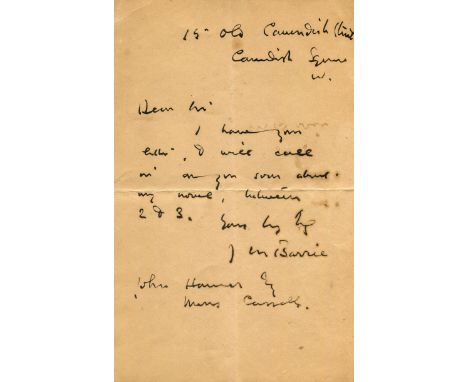 15 Old Cavendish Street
Cavendish Square
W.
Dear Sir
I have your
letter, I will call
on you soon about
my novel, between
2 & 3.
Yours
J M Barrie
John Hamer Esq
Messrs Cassells.